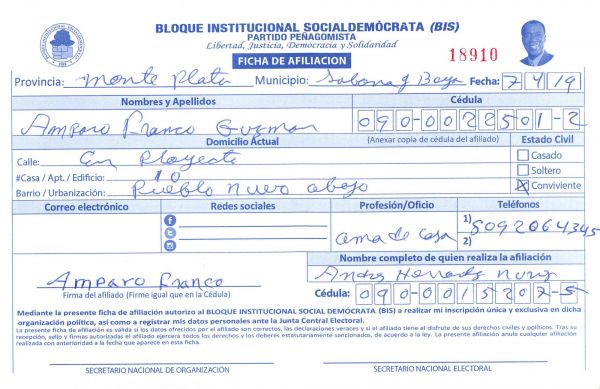 BLOQUE INSTITUCIONAL SOCIALDEMÓCRATA (BIS)
PARTIDO PEÑAGOMISTA
Libertad, Justicia, Democracia y Solidaridad
FICHA DE AFILIACION
18910
Provincia: Monte Plata Municipio: Sabana g Boya Fecha: 7 4 19
Nombres y Apellidos Cédula
Amparo Franco Guzman 090-0022501-2
Domicilio Actual (Anexar copia de cédula del afiliado) Estado Civil
Calle: En Proyecto Casado
#Casa / Apt. / Edificio: 10 Soltero
Barrio / Urbanización: Pueblo nuevo abajo Conviviente
Correo electrónico Redes sociales Profesión/Oficio Teléfonos
ama de casa 1) 8092064345
2)
Nombre completo de quien realiza la afiliación
Amparo Franco
Firma del afiliado (Firme igual que en la Cédula) Cédula: 090-0015202-5
Mediante la presente ficha de afiliación autorizo al BLOQUE INSTITUCIONAL SOCIAL DEMÓCRATA (BIS) a realizar mi inscripción única y exclusiva en dicha
organización política, así como a registrar mis datos personales ante la Junta Central Electoral.
La presente ficha de afiliación es válida si los datos ofrecidos por el afiliado son correctos, las declaraciones veraces y si el afiliado tiene el disfrute de sus derechos civiles y políticos. Tras su
recepción, sello y firmas autorizadas el afiliado ejercerá todos los derechos y los deberes estatutariamente sancionados, de acuerdo a la ley. La presente afiliación anula cualquier afiliación
realizada con anterioridad a la fecha que aparece en esta ficha.
SECRETARIO NACIONAL DE ORGANIZACIÓN SECRETARIO NACIONAL ELECTORAL